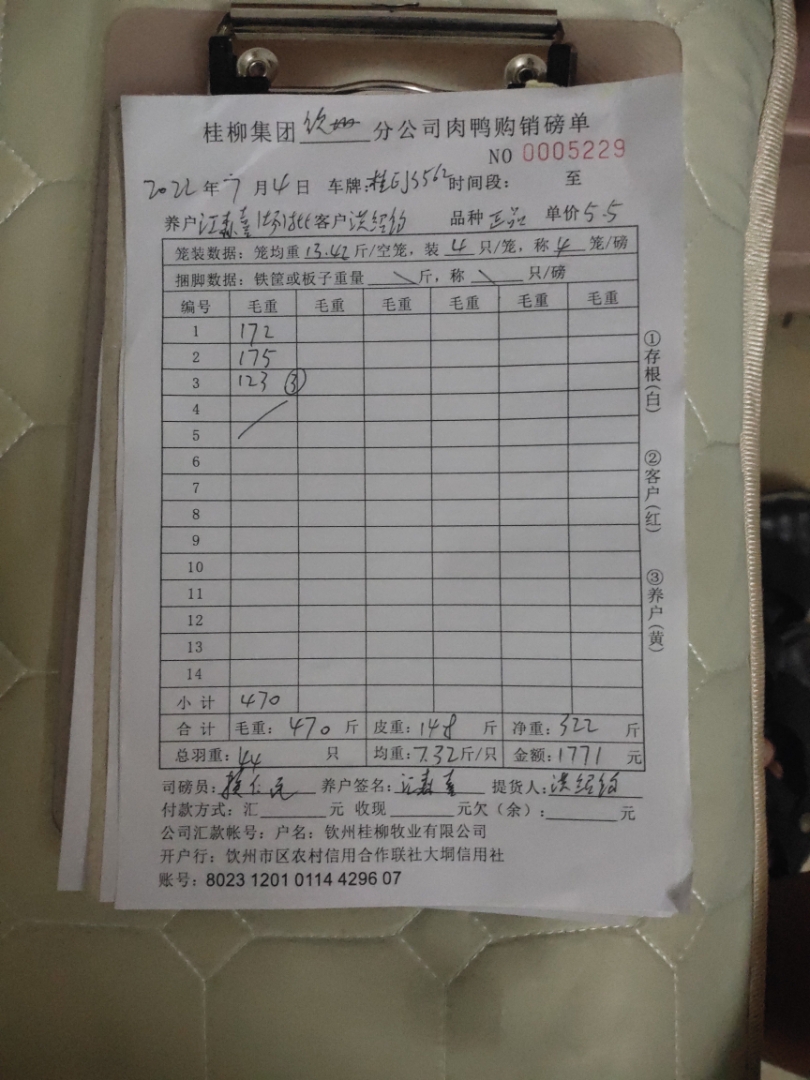 桂柳集团钦州分公司肉鸭购销磅单
NO 0005229
2022年7月4日 车牌: 时间段： 至
养户江森喜 客户洪绍钧 品种正品 单价5.5
笼装数据：笼均重13.42斤/空笼，装4只/笼，称4笼/磅
捆脚数据：铁筐或板子重量\斤，称\只/磅
编号 毛重 毛重 毛重 毛重 毛重
1 172
2 175
3 123 ③
4
5
6
7
8
9
10
11
12
13
14
小计 470
合计 毛重：470斤 皮重：148斤 净重：322斤
总羽重：44只 均重：7.32斤/只 金额：1771元
司磅员： 养户签名：江森喜 提货人：洪绍钧
付款方式：汇元 收现元欠（余）：元
公司汇款帐号：户名：钦州桂柳牧业有限公司
开户行：钦州市区农村信用合作联社大垌信用社
账号：8023 1201 0114 4296 07
①存根(白)
②客户(红)
③养户(黄)